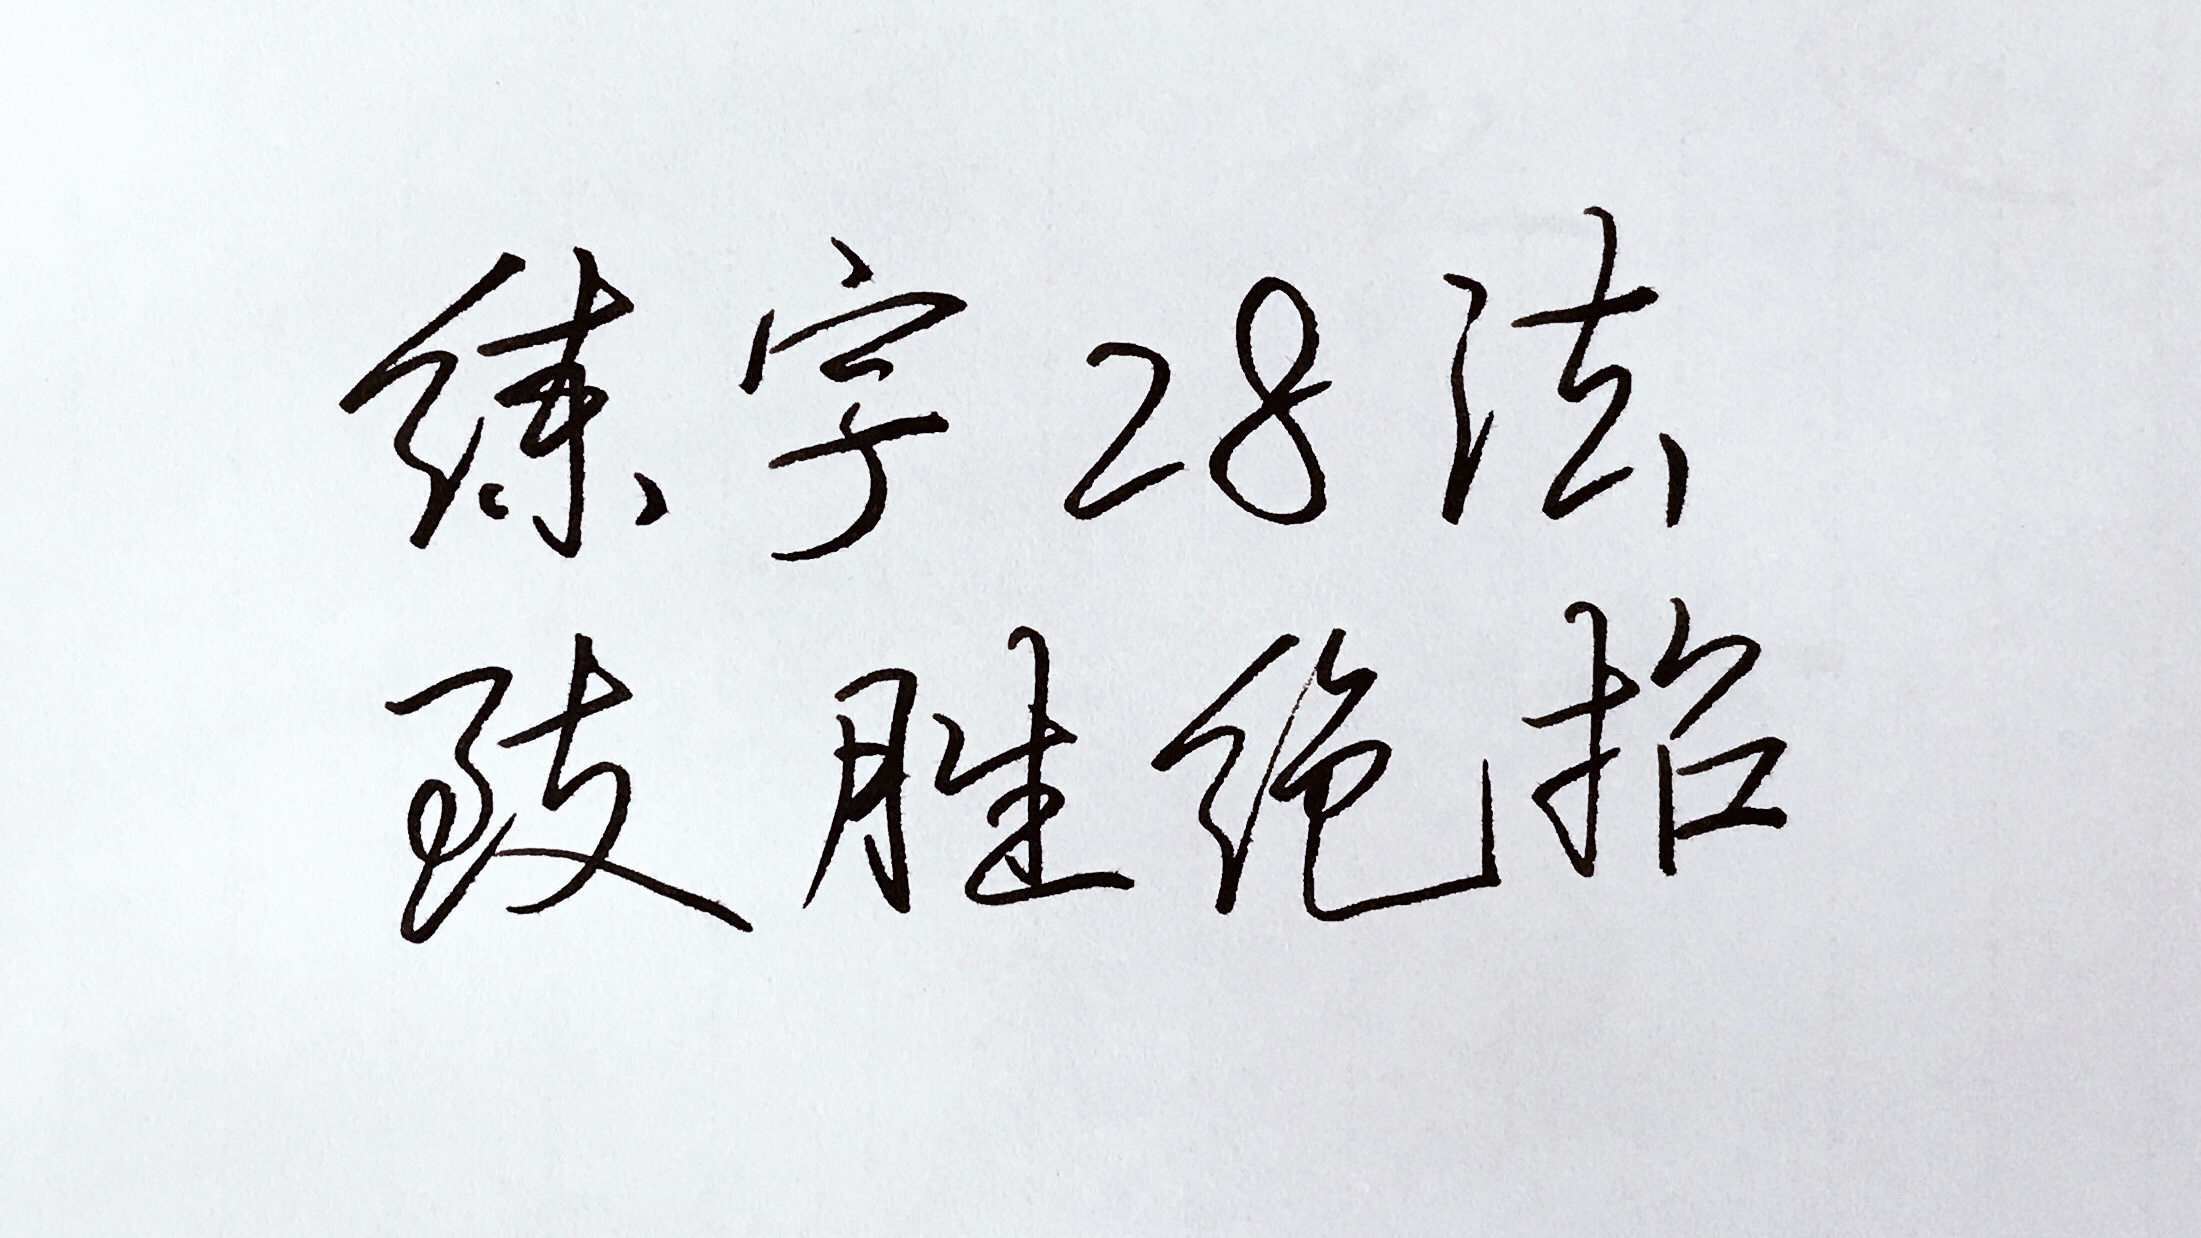 练字28法
致胜绝招